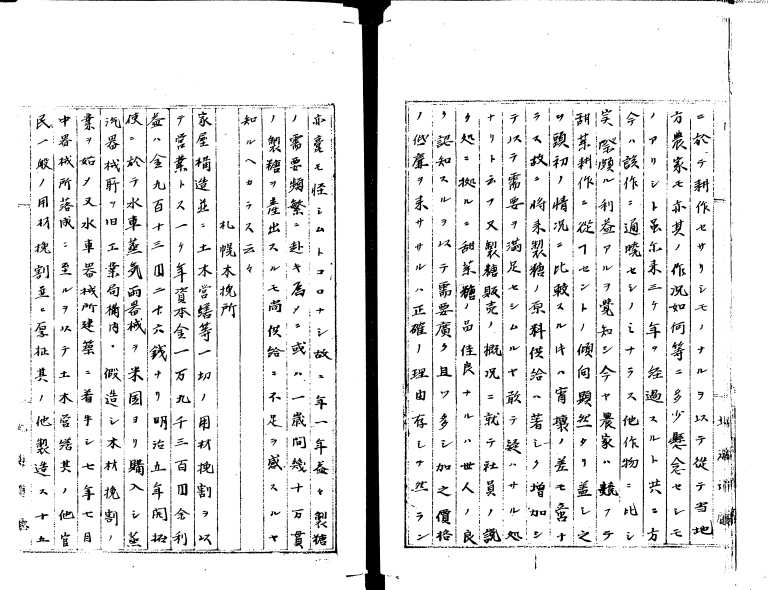 ニ於テ耕作セサリシモノナルヲ以テ從テ当地
方農家モ亦其ノ作況如何等ニ多少懸念セシモ
ノアリシト虽尓来三ケ年ヲ経過スルト共ニ方
今ハ該作ニ通暁セシノミナラス他作物ニ比シ
実際頗ル利益アルヲ覚知シ今ヤ農家ハ競フテ
甜菜耕作ニ從事セントノ傾向顕然タリ蓋シ之
ヲ頭初ノ情况ニ比較スルキハ霄壌ノ差モ啻ナ
ラス故ニ将来製糖ノ原料供給ハ著シク増加シ
テ以テ需要ヲ満足セシムルヤ敢テ疑ハサル処
ナリト云フ又製糖販売ノ概况ニ就テ社員ノ説
ク処ニ拠ルニ甜菜糖ノ品佳良ナルハ世人ノ良
ク認知スルヲ以テ需要廣ク且ツ多シ加之價格
ノ低廉ヲ来サヽルハ正確ノ理由存シテ然ラン
亦毫モ怪シムトコロナシ故ニ年一年益々製糖
ノ需要頻繁ニ赴キ為メニ或ハ一歳間幾十万貫
ノ製糖ヲ産出スルモ尚供給ニ不足ヲ感スルヤ
知ルヘカラス云々
札幌木挽所
家屋構造並ニ土木営繕等一切ノ用材挽割ヲ以
テ営業トス一ケ年資本金一万九千三百円金利
益ハ金九百十三円二十六銭ナリ明治五年開拓
使ニ於テ水車蒸気両器械ヲ米国ヨリ購入シ蒸
汽器械所ヲ旧工業局構内ニ假造シ木材挽割ノ
業ヲ始メ又水車器械所建築ニ着手シ七年七月
中器械所落成ニ至ルヲ以テ土木営繕其ノ他官
民一般ノ用材挽割並ニ厚柾其ノ他製造ス十五